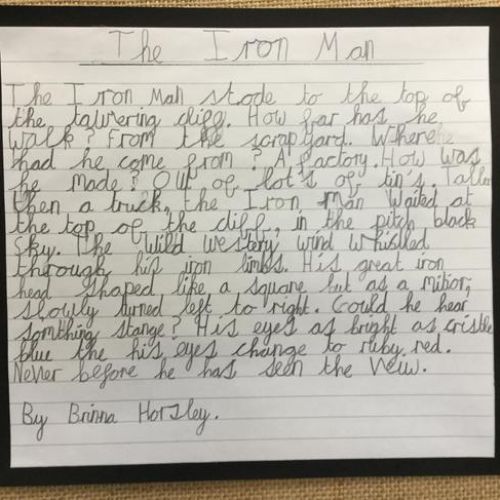 The Iron Man
The Iron Man stode to the top of
the tawering cliff. How far has he
walk? From the scrapyard. Where
had he come from? A factory. How was
he made? Out of lot's of tin's. Taller
then a truck, the Iron Man waited at
the top of the cliff, in the pitch black
sky. The wild western wind whistled
through his iron limbs. His great iron
head shaped like a square but as a
slowly turned left to right. Could he hear
somthing stange? His eyes as bright as cristle
blue the his eyes change to ruby red.
Never before he has seen the veiw.
By Brinna Horsley.